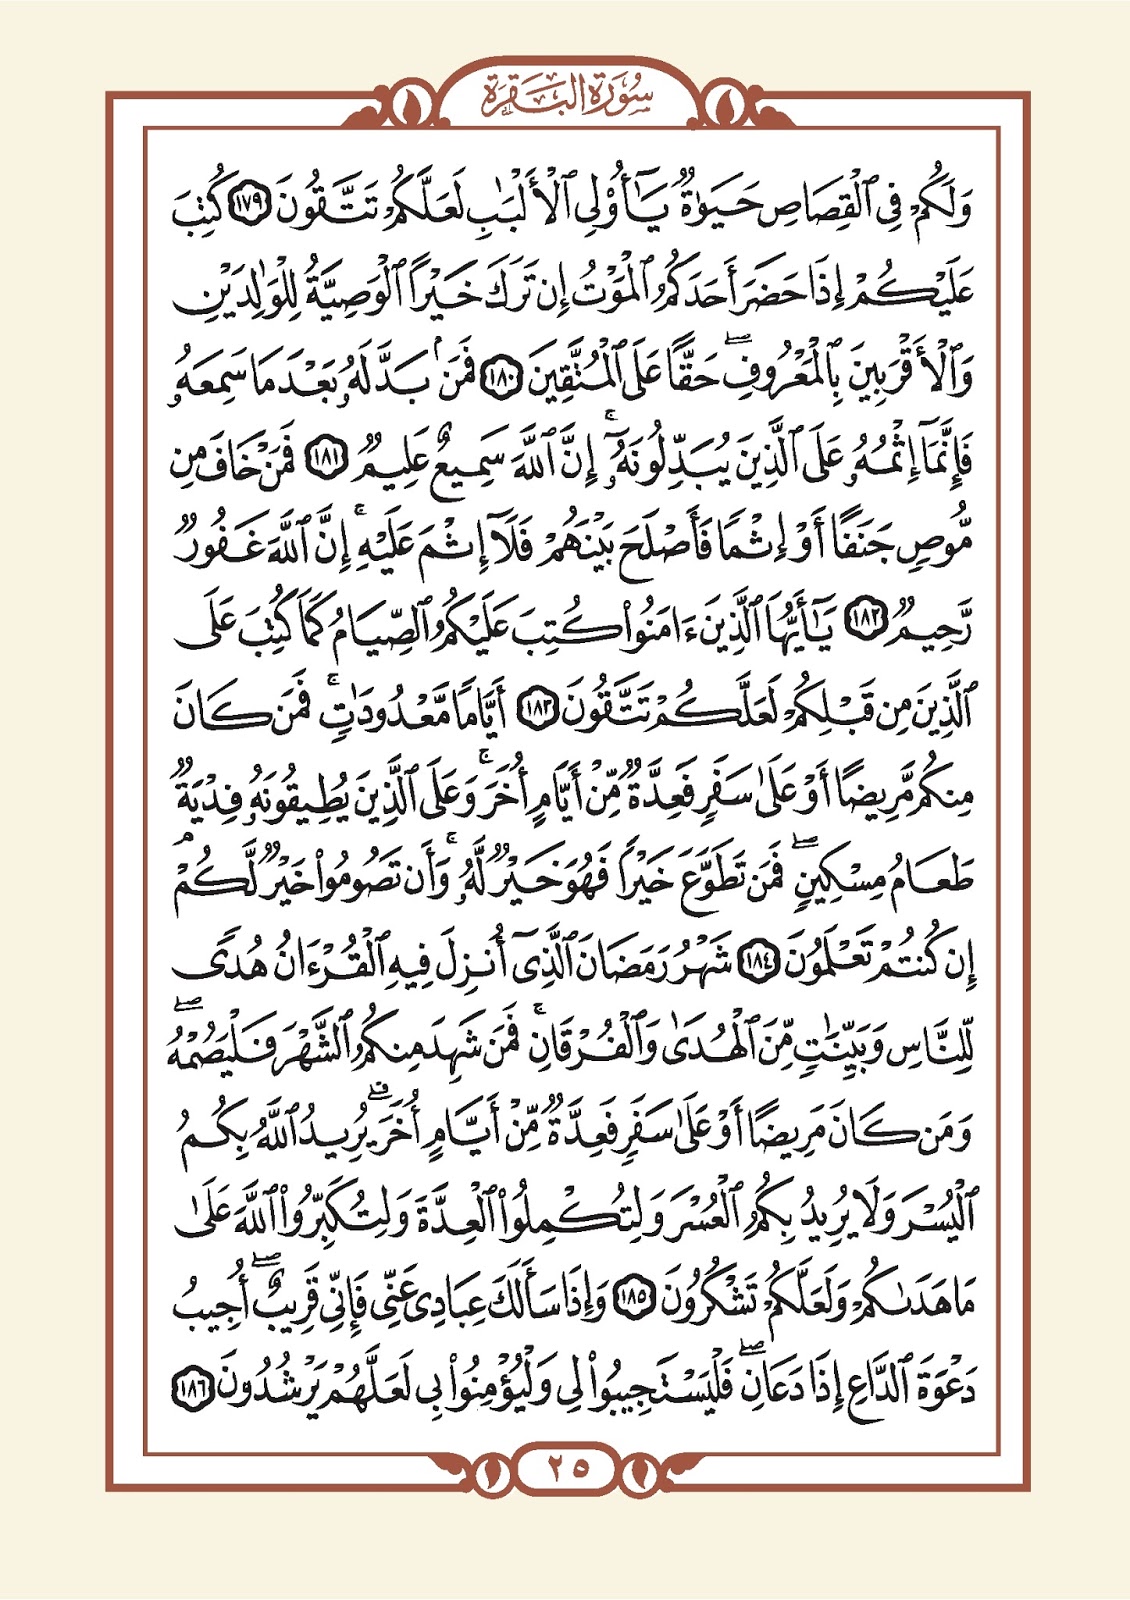 سُورَةُ البَقَرَةِ
وَلَكُمْ فِي ٱلْقِصَاصِ حَيَوٰةٌ يَـٰٓأُو۟لِي ٱلْأَلْبَـٰبِ لَعَلَّكُمْ تَتَّقُونَ ١٧٩ كُتِبَ
عَلَيْكُمْ إِذَا حَضَرَ أَحَدَكُمُ ٱلْمَوْتُ إِن تَرَكَ خَيْرًا ٱلْوَصِيَّةُ لِلْوَٰلِدَيْنِ
وَٱلْأَقْرَبِينَ بِٱلْمَعْرُوفِ ۖ حَقًّا عَلَى ٱلْمُتَّقِينَ ١٨٠ فَمَنۢ بَدَّلَهُۥ بَعْدَ مَا سَمِعَهُۥ
فَإِنَّمَآ إِثْمُهُۥ عَلَى ٱلَّذِينَ يُبَدِّلُونَهُۥٓ ۚ إِنَّ ٱللَّهَ سَمِيعٌ عَلِيمٌ ١٨١ فَمَنْ خَافَ مِن
مُّوصٍ جَنَفًا أَوْ إِثْمًا فَأَصْلَحَ بَيْنَهُمْ فَلَآ إِثْمَ عَلَيْهِ ۚ إِنَّ ٱللَّهَ غَفُورٌ
رَّحِيمٌ ١٨٢ يَـٰٓأَيُّهَا ٱلَّذِينَ ءَامَنُوا۟ كُتِبَ عَلَيْكُمُ ٱلصِّيَامُ كَمَا كُتِبَ عَلَى
ٱلَّذِينَ مِن قَبْلِكُمْ لَعَلَّكُمْ تَتَّقُونَ ١٨٣ أَيَّامًا مَّعْدُودَٰتٍ ۚ فَمَن كَانَ
مِنكُم مَّرِيضًا أَوْ عَلَىٰ سَفَرٍ فَعِدَّةٌ مِّنْ أَيَّامٍ أُخَرَ ۚ وَعَلَى ٱلَّذِينَ يُطِيقُونَهُۥ فِدْيَةٌ
طَعَامُ مِسْكِينٍ ۖ فَمَن تَطَوَّعَ خَيْرًا فَهُوَ خَيْرٌ لَّهُۥ ۚ وَأَن تَصُومُوا۟ خَيْرٌ لَّكُمْ ۖ
إِن كُنتُمْ تَعْلَمُونَ ١٨٤ شَهْرُ رَمَضَانَ ٱلَّذِىٓ أُنزِلَ فِيهِ ٱلْقُرْءَانُ هُدًى
لِّلنَّاسِ وَبَيِّنَـٰتٍ مِّنَ ٱلْهُدَىٰ وَٱلْفُرْقَانِ ۚ فَمَن شَهِدَ مِنكُمُ ٱلشَّهْرَ فَلْيَصُمْهُ ۖ
وَمَن كَانَ مَرِيضًا أَوْ عَلَىٰ سَفَرٍ فَعِدَّةٌ مِّنْ أَيَّامٍ أُخَرَ ۗ يُرِيدُ ٱللَّهُ بِكُمُ
ٱلْيُسْرَ وَلَا يُرِيدُ بِكُمُ ٱلْعُسْرَ وَلِتُكْمِلُوا۟ ٱلْعِدَّةَ وَلِتُكَبِّرُوا۟ ٱللَّهَ عَلَىٰ
مَا هَدَىٰكُمْ وَلَعَلَّكُمْ تَشْكُرُونَ ١٨٥ وَإِذَا سَأَلَكَ عِبَادِى عَنِّى فَإِنِّى قَرِيبٌ ۖ أُجِيبُ
دَعْوَةَ ٱلدَّاعِ إِذَا دَعَانِ ۖ فَلْيَسْتَجِيبُوا۟ لِى وَلْيُؤْمِنُوا۟ بِى لَعَلَّهُمْ يَرْشُدُونَ ١٨٦
٢٥